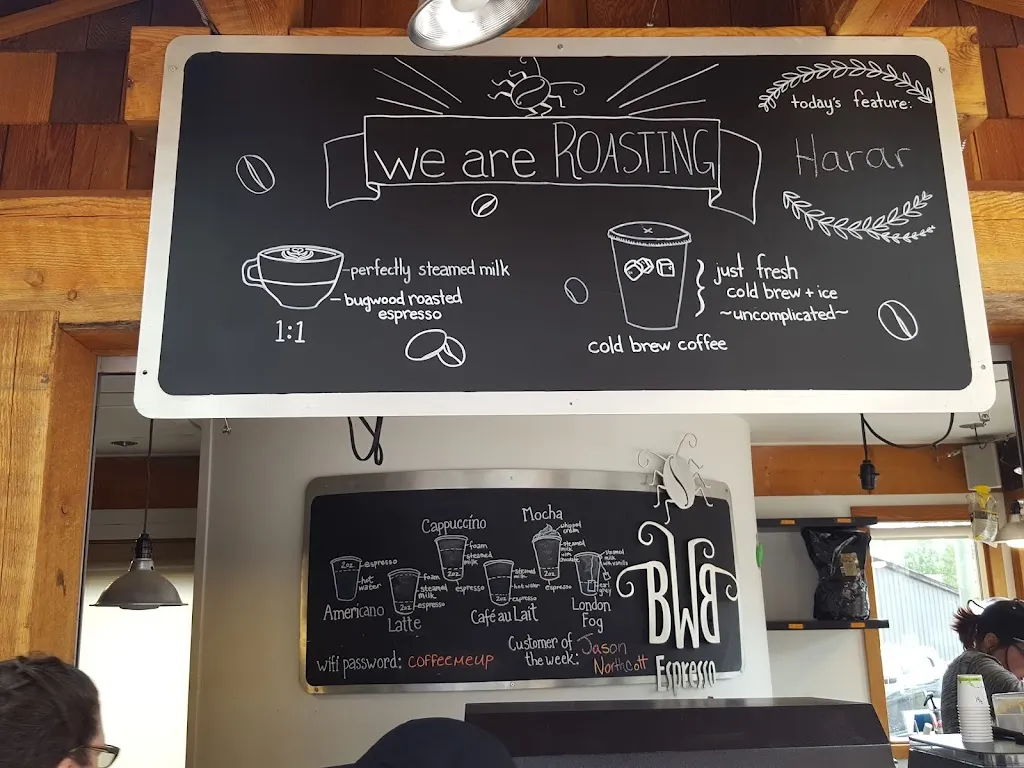 we are ROASTING
today's feature:
Harar
perfectly steamed milk
bugwood roasted
espresso
1:1
just fresh
cold brew + ice
~uncomplicated~
cold brew coffee
Cappuccino
foam
steamed
milk
espresso
Mocha
whipped
cream
steamed
milk
with chocolate
2oz
espresso
2oz
espresso
hot
water
Americano
foam
steamed
milk
2oz
espresso
Latte
steamed
milk
hot water
2oz
espresso
Café au Lait
steamed
milk
with vanilla
London
Fog
wifi password: coffeemeup
Customer of
the week:
Jason
Northcott
BWB
Espresso